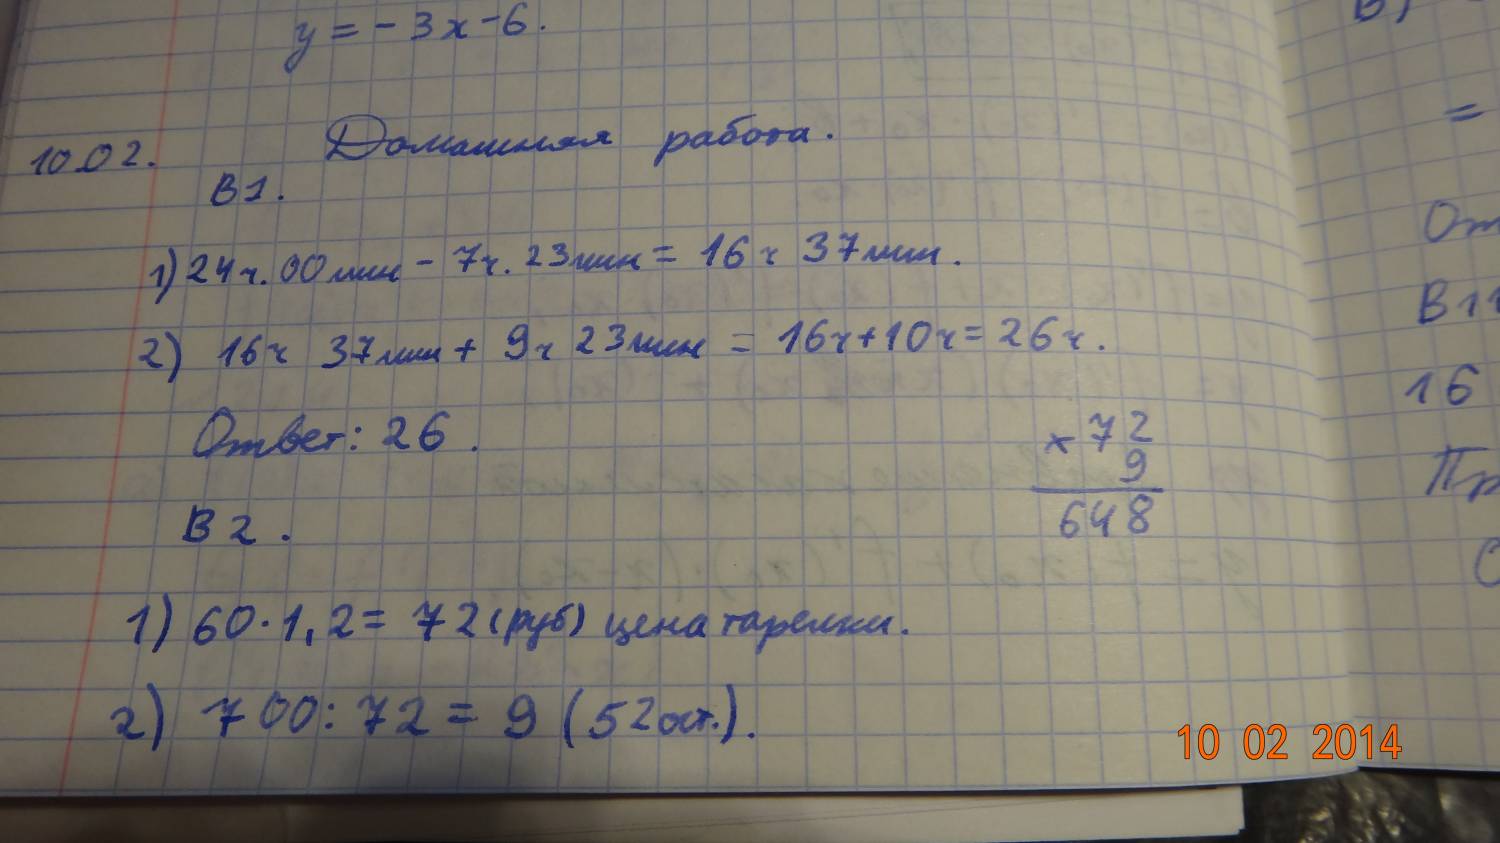 y = - 3x - 6.
10.02. Домашняя работа.
В1.
1) 24ч. 00мин - 7ч. 23мин = 16ч 37мин.
2) 16ч 37мин + 9ч 23мин = 16ч + 10ч = 26ч.
Ответ: 26.
× 72
9
648
В2.
1) 60 · 1,2 = 72 (руб) цена тарелки.
2) 700 : 72 = 9 (52 ост.).
=
В11
16
10 02 2014